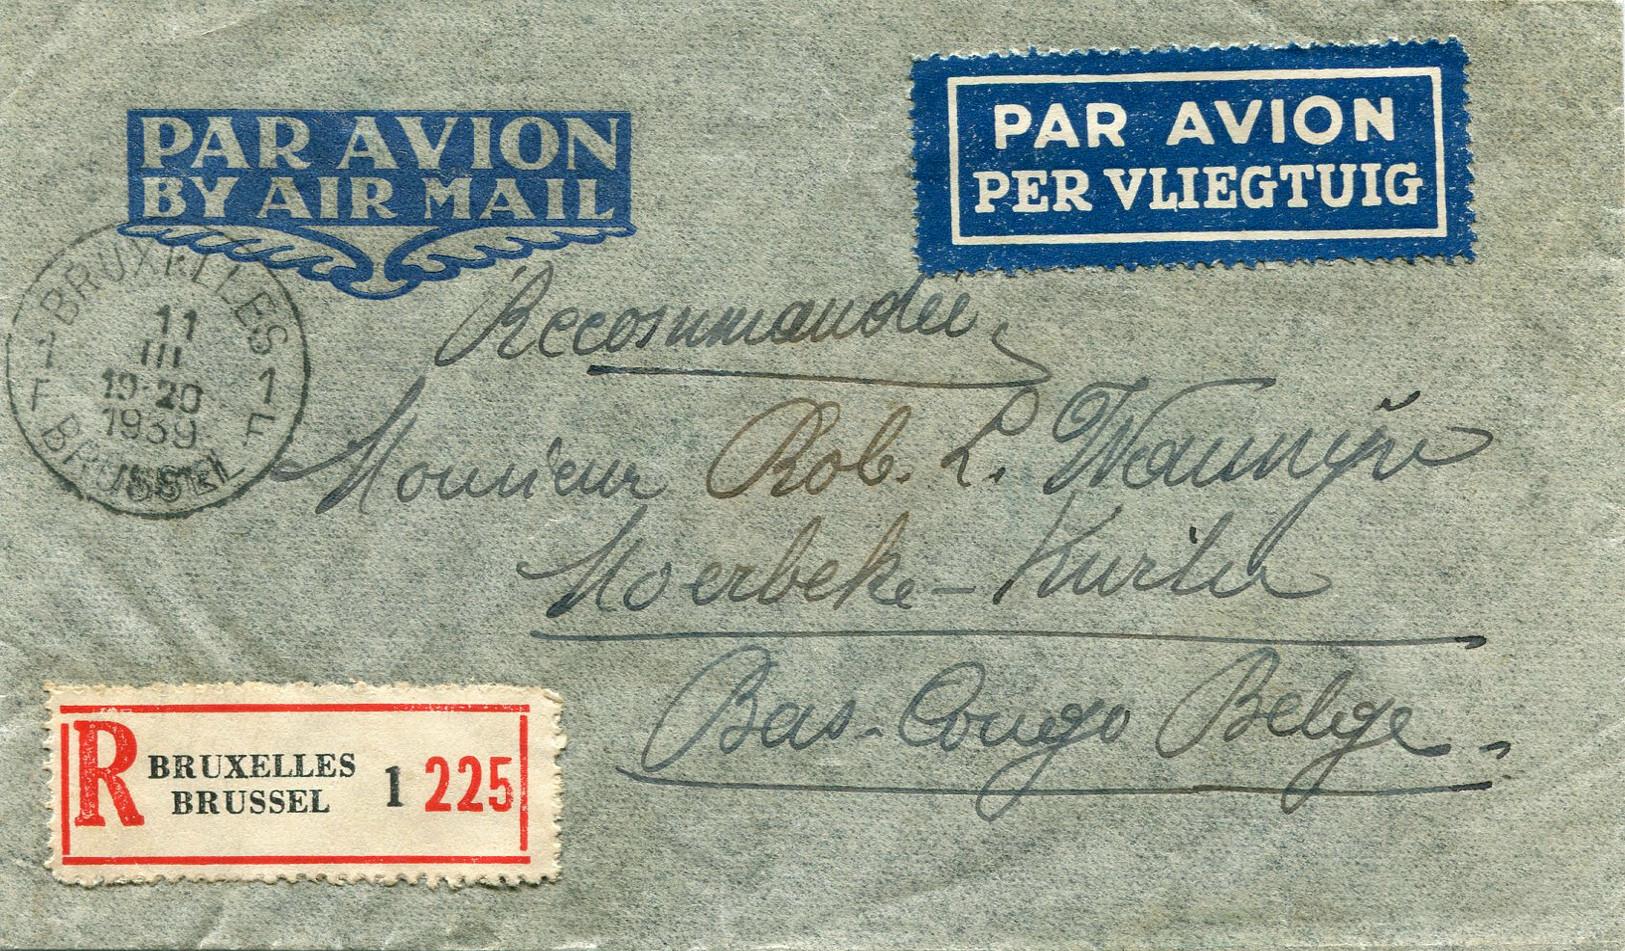 PAR AVION
BY AIR MAIL
PAR AVION
PER VLIEGTUIG
BRUXELLES
1 1
11
III
19-20
1939
F F
BRUSSEL
Recommandée
Monsieur Rob. L.
Moerbeke-Kwilu
Bas-Congo Belge.
R BRUXELLES
BRUSSEL 1 225